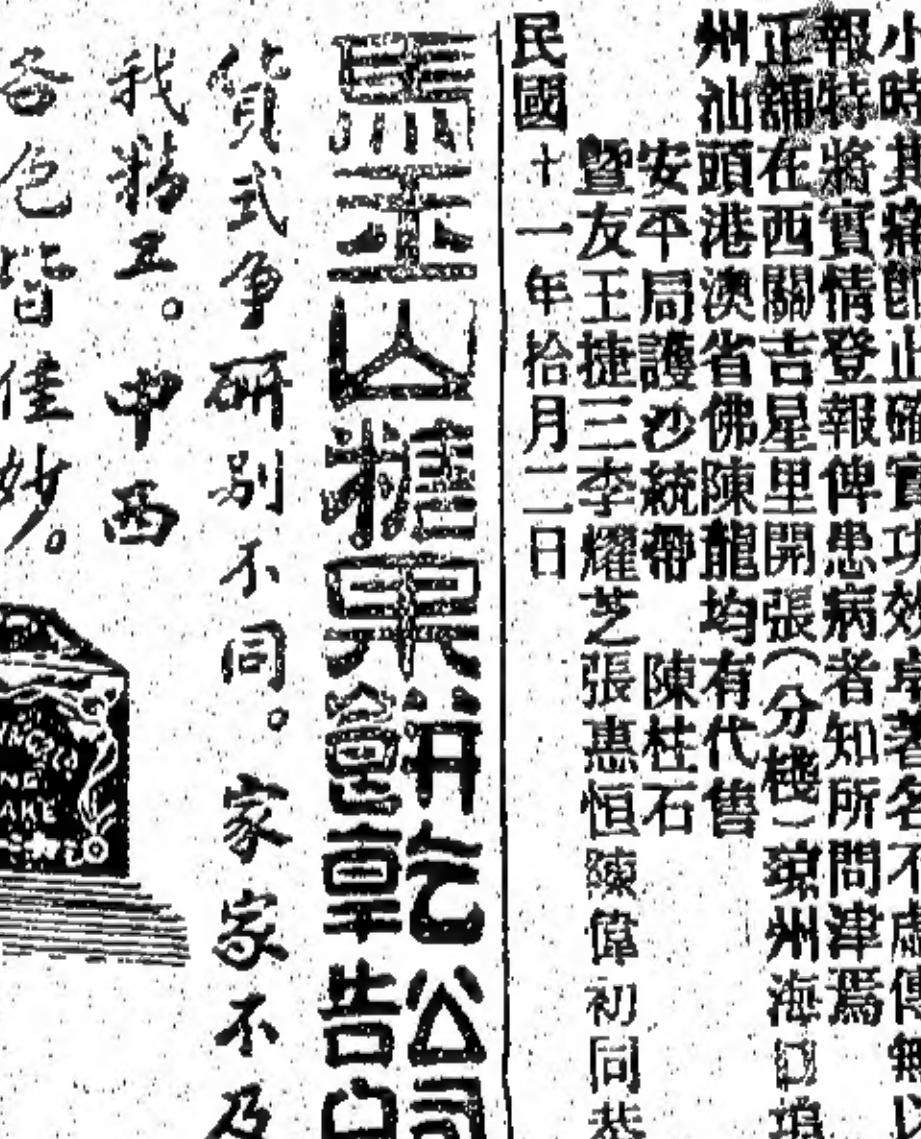 小時其痛卽止確實功效卓著名不虛傳無以
報特將實情登報俾患病者知所問津焉
正舖在西關吉星里開張(分棧)瓊州海口埠
州汕頭港澳省佛陳龍均有代售
安平局護沙統帶 陳柱石
暨友王捷三李耀芝張惠恒陳偉初同恭
民國十一年拾月二日
馬玉山糖果餅乾公司
會章告白
貨式爭研別不同。家家不及
我精工。中西
各色皆佳妙。